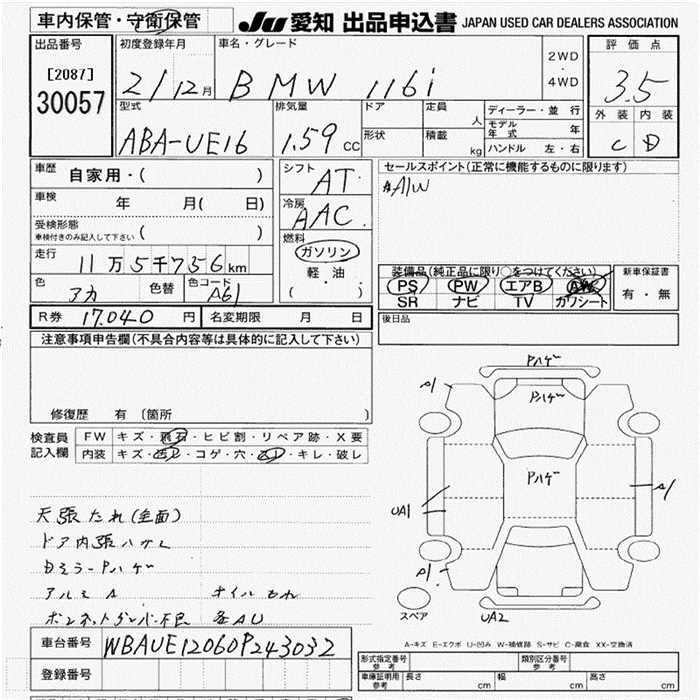 車内保管・守衛保管
JU 愛知 出品申込書 JAPAN USED CAR DEALERS ASSOCIATION
出品番号
[2087]
30057
初度登録年月
21/12月
車名・グレード
BMW 116i
2WD
・
4WD
評価点
3.5
外装 内装
C D
型式
ABA-UE16
排気量
1.59 cc
ドア
定員
人
形状
積載
kg
ディーラー・並行
モデル年式
年
ハンドル 左・右
車歴 自家用・( )
車検 年 月( 日)
受検形態
車検付きのみ記入して下さい ( )
走行
11万5千736km
色 アカ 色替 色コード A61
シフト
AT
冷房
AAC
燃料
ガソリン
・
軽油
( )
セールスポイント(正常に機能するものに限ります)
AW
装備品(純正品に限り○をつけてください)
PS PW エアB AW
SR ナビ TV カワシート
新車保証書
有・無
R券 17,040 円 名変期限 月 日
後日品
注意事項申告欄(不具合内容等は具体的に記入して下さい)
修復歴 有〔箇所 〕
検査員記入欄
FW キズ・飛石・ヒビ割・リペア跡・X要
内装 キズ・汚レ・コゲ・穴・スレ・キレ・破レ
天張たれ(全面)
ドア内張ハガレ
Pハゲ
アルミ A
オイルもれ
ボンネットダンパー不良
各AU
Pハゲ
A1
Pハゲ
Pハゲ
UA1
A1
A1
スペア
UA2
A-キズ E-エクボ U-凹み W-補修跡 S-サビ C-腐食 XX-交換済
車台番号 WBAUE12060P243032
登録番号
形式指定番号
参考
類別区分番号
参考
車庫証明用
参考
長さ cm 幅 cm 高さ cm